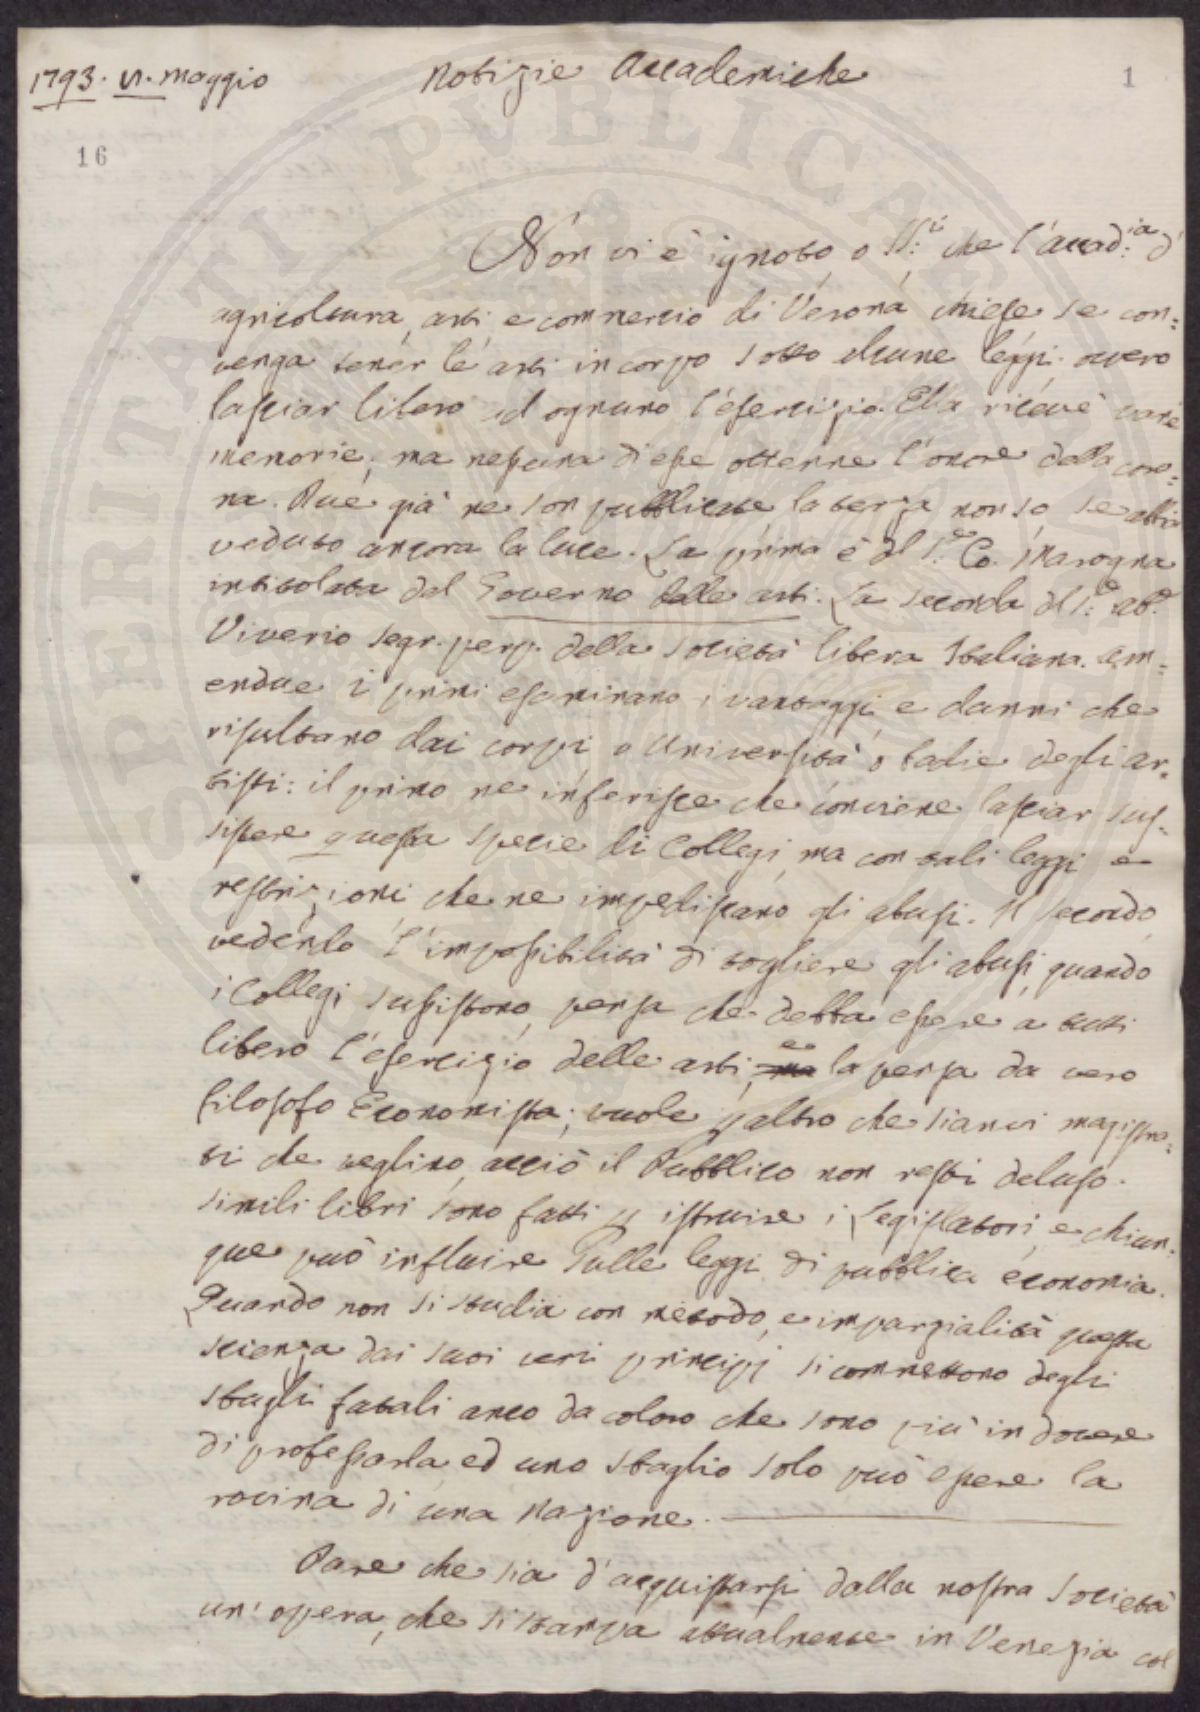 1793. VI. Maggio
Notizie Accademiche
1
16
Non vi è ignoto, o SS:ri che l'Accad:ia d'
agricoltura, arti e commercio di Verona chiese se con=
venga tener le arti in corpo sotto alcune leggi, ovvero
lasciar libero ad ognuno l'esercizio. Ella ricevè varie
memorie, ma nessuna di esse ottenne l'onore della coro=
na. Due già ne son pubblicate la terza non so se abbia
veduto ancora la luce. La prima è del S.r Co. Marogna
intitolata del Governo delle arti. La seconda del S:r ab.e
Viverio segr. perp. della società libera Italiana. am=
endue i primi esaminano i vantaggi, e danni che
risultano dai corpi o Università o Badie degli ar=
tisti: il primo ne inferisce che conviene lasciar sus=
sistere questa specie di Collegi, ma con tali leggi e
restrizioni che ne impediscano gli abusi. Il secondo
vedendo l'impossibilità di togliere gli abusi, quando
i Collegi sussistono, pensa che debba essere a tutti
libero l'esercizio delle arti, e la pensa da vero
filosofo Economista; vuole p altro che sianvi magistra=
ti che veglino, acciò il Pubblico non resti deluso.
simili libri sono fatti p istruire i Legislatori, e chiun=
que può influire sulle leggi di pubblica economia.
Quando non si studia con metodo, e imparzialità questa
scienza dai suoi veri principj si commettono degli
sbagli fatali anco da coloro che sono più in dovere
di professarla ed uno sbaglio solo può essere la
rovina di una Nazione.
Pare che sia d'acquistarsi dalla nostra Società
un' opera, che si stampa attualmente in Venezia col